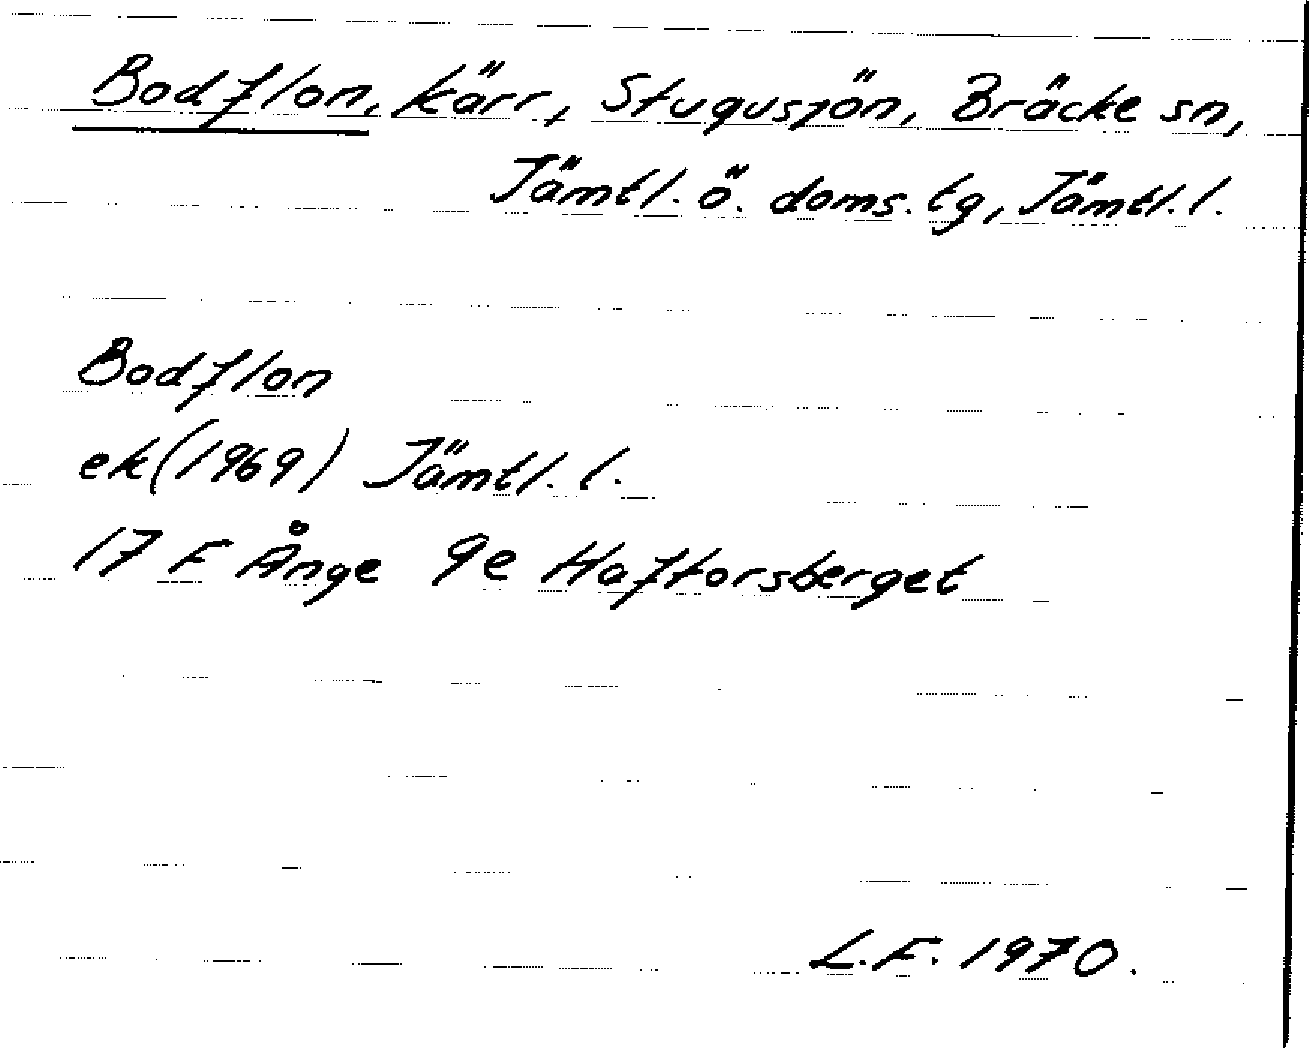 Bodflon, kärr, Stugusjön, Bräcke sn,
Jämtl. ö. doms. tg, Jämtl. l.
Bodflon
ek (1969) Jämtl. l.
17 F Ånge 9e Haftorsberget
L.F. 1970.